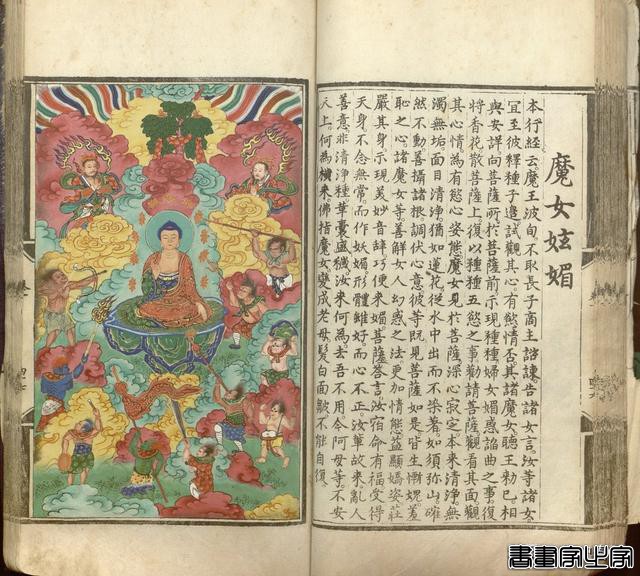 魔女妶媚
本行経云魔王波旬不取長子商主諮諫告諸女言。汝等諸女
冝至彼釋種子邉試觀其心。有慾情否其諸魔女聽王勅已。相
與安詳向菩薩所於菩薩前示現種種婦女媚惑諂曲之事。復
將香花散菩薩上復以種種五慾之事勸請菩薩觀看其面觀
其心情為有慾心姿態魔女見於菩薩深心寂定本来清淨無
濁無垢面目清淨。猶如蓮花從水中出而不染著。如須弥山確
然不動善攝諸根調伏心意彼等既見菩薩如是皆生慚愧羞
恥之心諸魔女等善解女人幻惑之法更加情態益顯嬌姿莊
嚴其身示現美妙音辞巧便来媚菩薩答言汝宿命有福受得
天身不念無常。而作妖媚形體雖好而心不正汝輩故来亂人
善意非清淨種革囊盛穢汝来何為去吾不用令阿母等。不安
天上。何為橫来。佛指魔女變成老母髮白面皺不能自復。
書畫家